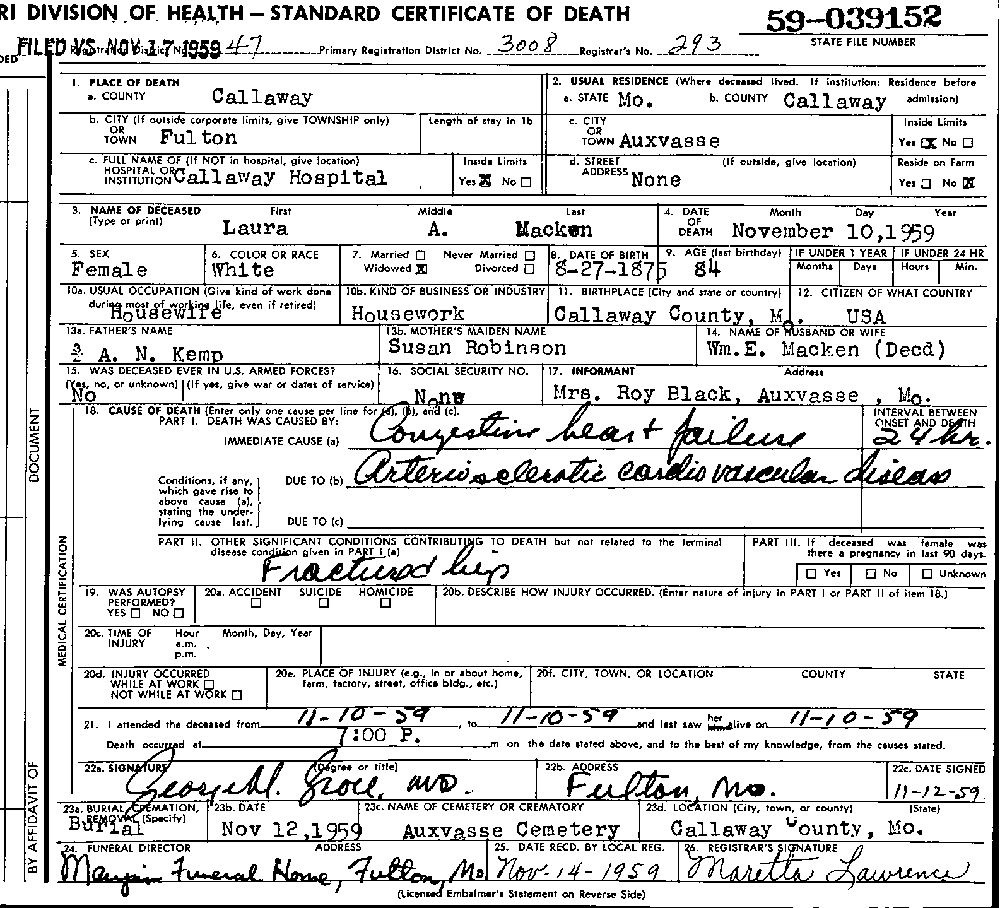 RI DIVISION OF HEALTH — STANDARD CERTIFICATE OF DEATH
59-039152
STATE FILE NUMBER
FILED VS. NOV 17 1959 47 Primary Registration District No. 3008 Registrar's No. 293
1. PLACE OF DEATH
a. COUNTY Callaway
2. USUAL RESIDENCE (Where deceased lived. If institution: Residence before admission)
a. STATE Mo. b. COUNTY Callaway
b. CITY (If outside corporate limits, give TOWNSHIP only) OR TOWN Fulton
Length of stay in 1b
c. CITY OR TOWN Auxvasse
Inside Limits
Yes ☒ No ☐
c. FULL NAME OF (If NOT in hospital, give location) HOSPITAL OR INSTITUTION Callaway Hospital
Inside Limits
Yes ☒ No ☐
d. STREET ADDRESS (If outside, give location) None
Reside on Farm
Yes ☐ No ☒
3. NAME OF DECEASED (Type or print)
First Middle Last
Laura A. Macken
4. DATE OF DEATH
Month Day Year
November 10,1959
5. SEX
Female
6. COLOR OR RACE
White
7. Married ☐ Never Married ☐
Widowed ☒ Divorced ☐
8. DATE OF BIRTH
8-27-1875
9. AGE (last birthday)
84
IF UNDER 1 YEAR
Months Days
IF UNDER 24 HR
Hours Min.
10a. USUAL OCCUPATION (Give kind of work done during most of working life, even if retired)
Housewife
10b. KIND OF BUSINESS OR INDUSTRY
Housework
11. BIRTHPLACE (City and state or country)
Callaway County, Mo.
12. CITIZEN OF WHAT COUNTRY
USA
13a. FATHER'S NAME
A. N. Kemp
13b. MOTHER'S MAIDEN NAME
Susan Robinson
14. NAME OF HUSBAND OR WIFE
Wm.E. Macken (Decd)
15. WAS DECEASED EVER IN U.S. ARMED FORCES?
(Yes, no, or unknown) (If yes, give war or dates of service)
No
16. SOCIAL SECURITY NO.
None
17. INFORMANT Address
Mrs. Roy Black, Auxvasse , Mo.
18. CAUSE OF DEATH (Enter only one cause per line for (a), (b), and (c).
PART I. DEATH WAS CAUSED BY:
IMMEDIATE CAUSE (a) Congestive heart failure
INTERVAL BETWEEN ONSET AND DEATH
24 hr.
Conditions, if any, which gave rise to above cause (a), stating the underlying cause last.
DUE TO (b) Arteriosclerotic cardiovascular disease
DUE TO (c)
PART II. OTHER SIGNIFICANT CONDITIONS CONTRIBUTING TO DEATH but not related to the terminal disease condition given in PART I (a)
Fractured hip
PART III. If deceased was female was there a pregnancy in last 90 days.
☐ Yes ☐ No ☐ Unknown
19. WAS AUTOPSY PERFORMED?
YES ☐ NO ☐
20a. ACCIDENT SUICIDE HOMICIDE
☐ ☐ ☐
20b. DESCRIBE HOW INJURY OCCURRED. (Enter nature of injury in PART I or PART II of item 18.)
20c. TIME OF INJURY Hour Month, Day, Year
a.m.
p.m.
20d. INJURY OCCURRED
WHILE AT WORK ☐
NOT WHILE AT WORK ☐
20e. PLACE OF INJURY (e.g., in or about home, farm, factory, street, office bldg., etc.)
20f. CITY, TOWN, OR LOCATION COUNTY STATE
21. I attended the deceased from 11-10-59, to 11-10-59 and last saw her alive on 11-10-59
Death occurred at 7:00 P. m on the date stated above, and to the best of my knowledge, from the causes stated.
22a. SIGNATURE (Degree or title)
MD.
22b. ADDRESS
Fulton, Mo.
22c. DATE SIGNED
11-12-59
23a. BURIAL, CREMATION, REMOVAL (Specify)
Burial
23b. DATE
Nov 12,1959
23c. NAME OF CEMETERY OR CREMATORY
Auxvasse Cemetery
23d. LOCATION (City, town, or county) (State)
Callaway County, Mo.
24. FUNERAL DIRECTOR ADDRESS
Funeral Home, Fulton, Mo
25. DATE RECD. BY LOCAL REG.
Nov-14-1959
26. REGISTRAR'S SIGNATURE
Maretta Lawrence
(Licensed Embalmer's Statement on Reverse Side)
DOCUMENT
MEDICAL CERTIFICATION
BY AFFIDAVIT OF